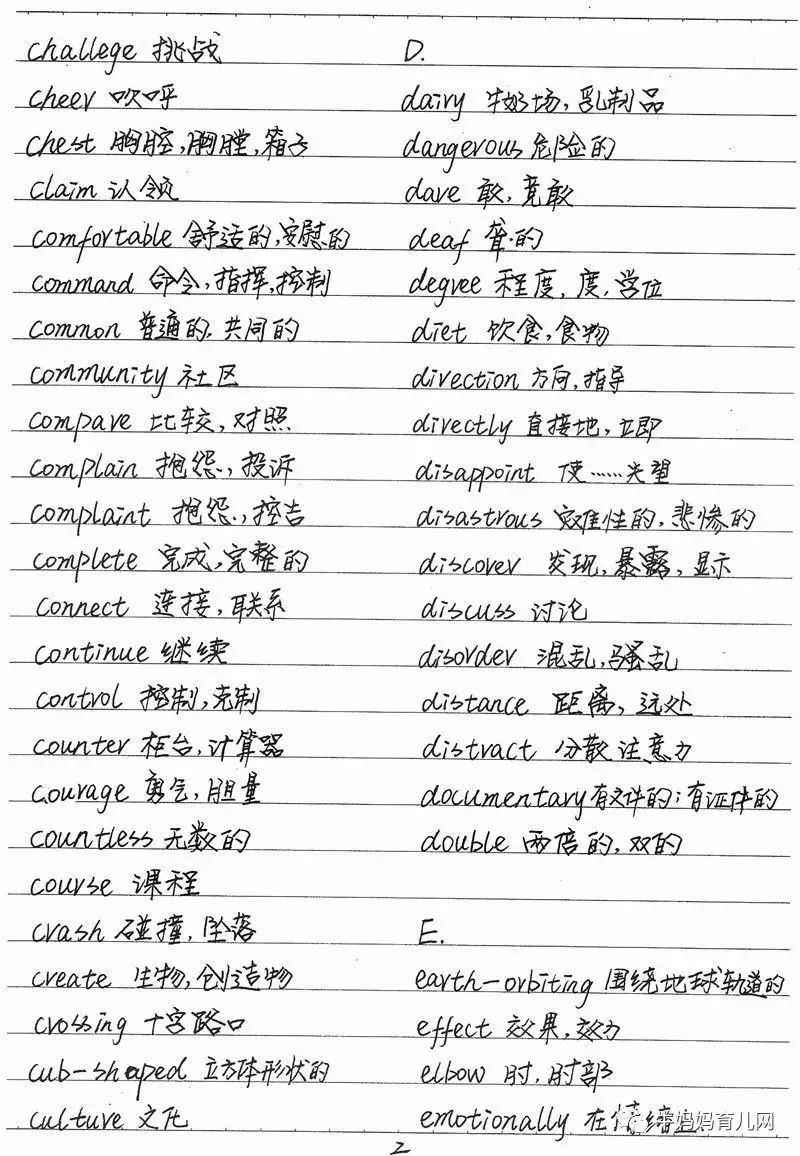 challege 挑战
cheer 吹呼
chest 胸腔,胸膛,箱子
claim 认领
comfortable 舒适的,安慰的
command 命令,指挥,控制
common 普通的,共同的
community 社区
compare 比较,对照
complain 抱怨,投诉
complaint 抱怨,控告
complete 完成,完整的
connect 连接,联系
continue 继续
control 控制,克制
counter 柜台,计算器
courage 勇气,胆量
countless 无数的
course 课程
crash 碰撞,坠落
create 生物,创造物
crossing 十字路口
cub-shaped 立方体形状的
culture 文化
D.
dairy 牛奶场,乳制品
dangerous 危险的
dare 敢,竟敢
deaf 聋的
degree 程度,度,学位
diet 饮食,食物
direction 方向,指导
directly 直接地,立即
disappoint 使……失望
disastrous 灾难性的,悲惨的
discover 发现,暴露,显示
discuss 讨论
disorder 混乱,骚乱
distance 距离,远处
distract 分散注意力
documentary 有文件的;有证件的
double 两倍的,双的
E.
earth-orbiting 围绕地球轨道的
effect 效果,效力
elbow 肘,肘部
emotionally 在情绪上
2
妈妈育儿网